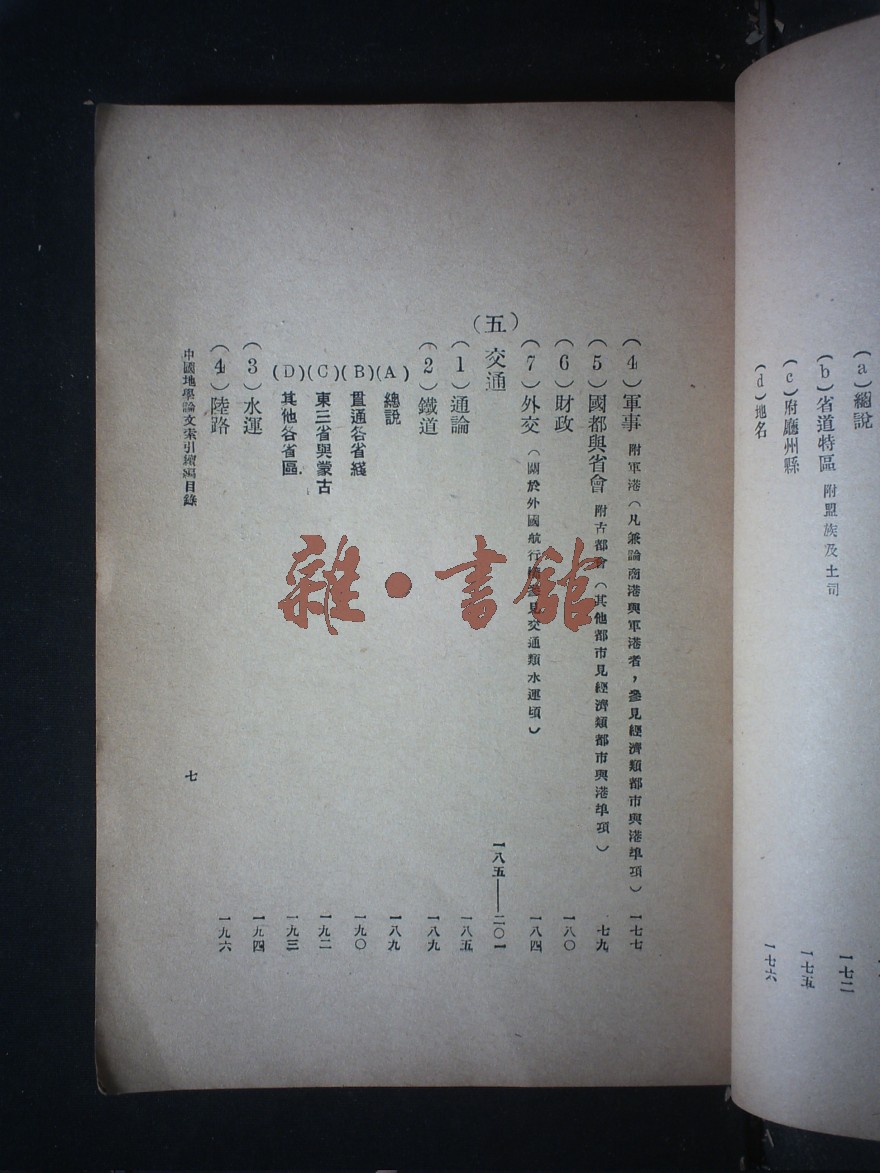 (a)總說
(b)省道特區 附盟族及土司 一七二
(c)府廳州縣 一七五
(d)地名 一七六
(4)軍事 附軍港(凡兼論商港與軍港者,參見經濟類都市與港埠項) 一七七
(5)國都與省會 附古都會(其他都市見經濟類都市與港埠項) 七九
(6)財政 一八〇
(7)外交(關於外國航行 參見交通類水運項) 一八四
(五)交通 一八五——二〇一
(1)通論 一八五
(2)鐵道 一八九
(A)總說 一八九
(B)貫通各省綫 一九〇
(C)東三省與蒙古 一九二
(D)其他各省區 一九三
(3)水運 一九四
(4)陸路 一九六
中國地學論文索引續編目錄
七
雜·書館